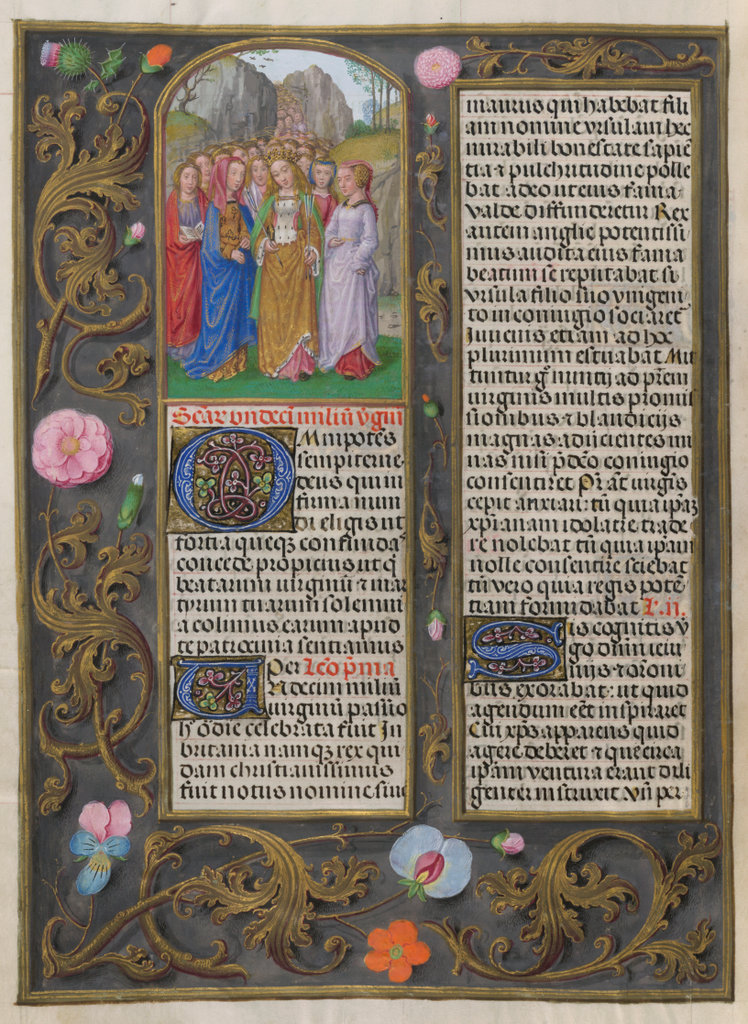 Scar̄ vndeci miliū v̄ginū
OMnipotēs
sempiterne
deus qui in
firma mun
di eligis ut
fortia queqȝ confunda͛
concede propicius ut q̄
beatarum uirginū ⁊ mar
tyrum tuarum solemni
a colimus earum apud
te patrocinia sentiamus
Per Leo p̄ma
Vndecim miliū
uirginū passio
hodie celebrata fuit In
britania namqȝ rex qui
dam christianissimus
fuit notus nomine siue
maurus qui habebat fili
am nomine vrsulam hec
mirabili honestate sapiē
tia ⁊ pulchritudine polle
bat adeo ut eius fama
valde diffunderetur Rex
autem anglie potentissi
mus audita eius fama
beatum se reputabat si
vrsula filio suo vnigeni
to in coniugio sociaret͛
Iuuenis etiam ad hoc
plurimum estuabat Mit
tuntur g̊ nuntij ad pr̄em
uirginis multis promis
sionibus ⁊ blandicijs
magnas adiicientes mi
nas nisi p̄deo coniugio
consentiret Pr̄ at͛ uirgīs
cepit anxiari: tū quia ip̄aȝ
xp̄ianam idolatre trade
re nolebat tū quia ip̄am
nolle consentire sciebat
tū vero quia regis potē
tiam formidabat L. ii.
His cognitis v͛
go domini ieiu
nijs ⁊ or̄oni
bus exorabat: ut quid
agendum eēt inspiraret
Cui xp̄s apparens quid
agere deberet ⁊ que circa
ip̄am ventura erant dili
genter instruxit Vn̄ per